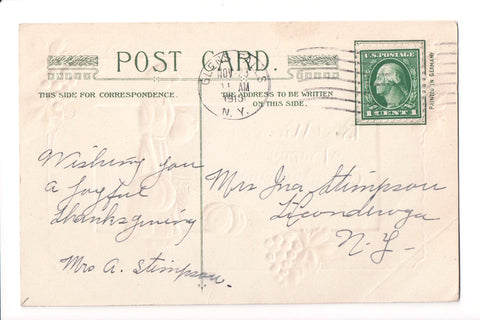 POST CARD.
THIS SIDE FOR CORRESPONDENCE.
THE ADDRESS TO BE WRITTEN
ON THIS SIDE.
NOV
AM
N. Y.
1 CENT 1
PRINTED IN GERMANY
Wishing you
a Joyful
Thanksgiving
Mrs A. Stimpson.
Mrs Ira Stimpson
Ticonderoga
N. Y.